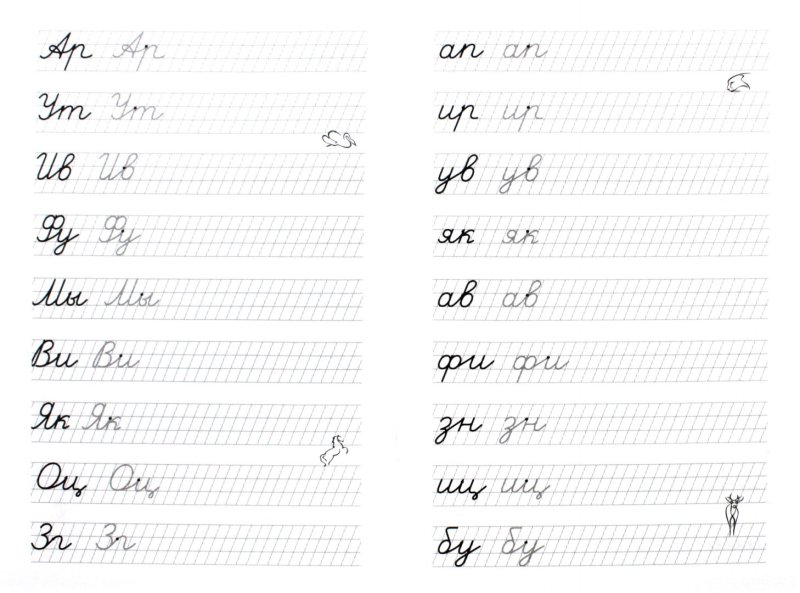 Ар Ар
Ут Ут
Ив Ив
Фу Фу
Мы Мы
Ви Ви
Як Як
Оц Оц
Зг Зг
ап ап
ир ир
ув ув
як як
ав ав
фи фи
зн зн
иц иц
бу бу